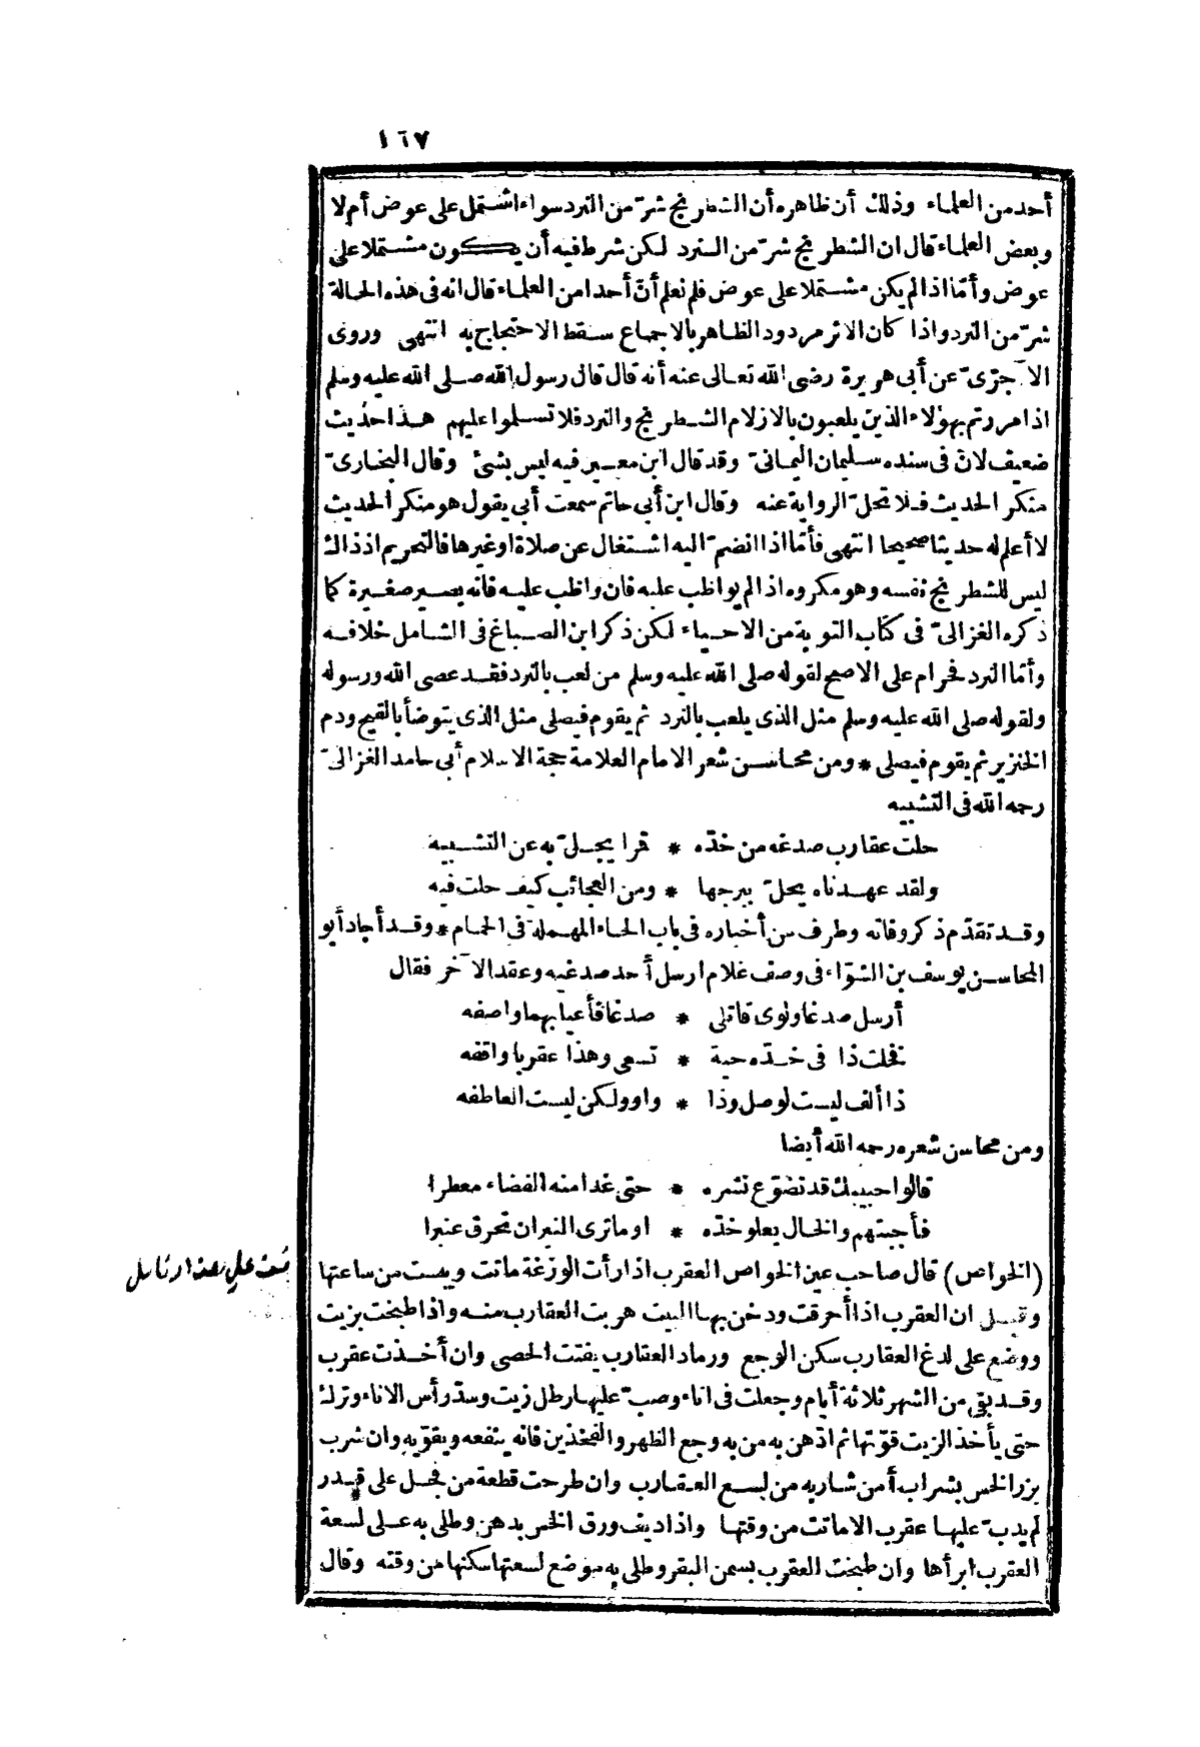 ١٦٧
أحد من العلماء وذلك أن ظاهره أن الشطرنج شرّ من النرد سواء اشتمل على عوض أم لا
وبعض العلماء قال ان الشطرنج شرّ من النرد لكن شرط فيه أن يكون مشتملا على
عوض وأمّا اذا لم يكن مشتملا على عوض فلم نعلم أنّ أحدا من العلماء قال انه فى هذه الحالة
شرّ من النرد واذا كان الاثر مردود الظاهر بالاجماع سقط الاحتجاج به انتهى وروى
الآجرّىّ عن أبى هريرة رضى الله تعالى عنه أنه قال قال رسول الله صلى الله عليه وسلم
اذا مررتم بهؤلاء الذين يلعبون بالازلام الشطرنج والنرد فلا تسلموا عليهم هذا حديث
ضعيف لانّ فى سنده سليمان اليمانىّ وقد قال ابن معين فيه ليس بشئ وقال البخارىّ
منكر الحديث فلا تحلّ الرواية عنه وقال ابن أبى حاتم سمعت أبى يقول هو منكر الحديث
لا أعلم له حديثا صحيحا انتهى فأمّا اذا انضمّ اليه اشتغال عن صلاة او غيرها فالتحريم اذ ذاك
ليس للشطرنج نفسه وهو مكروه اذا لم يواظب عليه فان واظب عليه فانه يصير صغيرة كما
ذكره الغزالىّ فى كتاب التوبة من الاحياء لكن ذكر ابن الصباغ فى الشامل خلافه
وأمّا النرد فحرام على الاصح لقوله صلى الله عليه وسلم من لعب بالنرد فقد عصى الله ورسوله
ولقوله صلى الله عليه وسلم مثل الذى يلعب بالنرد ثم يقوم فيصلى مثل الذى يتوضأ بالقيح ودم
الخنزير ثم يقوم فيصلى * ومن محاسن شعر الامام العلامة حجة الاسلام أبى حامد الغزالىّ
رحمه الله فى التشبيه
حلت عقارب صدغه من خدّه * قمرا يجلّ به عن التشبيه
ولقد عهدناه يحلّ ببرجها * ومن العجائب كيف حلت فيه
وقد تقدّم ذكر وفاته وطرف من أخباره فى باب الحاء المهملة فى الحمام * وقد أجاد أبو
المحاسن يوسف بن الشوّاء فى وصف غلام ارسل أحد صدغيه وعقد الآخر فقال
أرسل صدغا ولوى قاتلى * صدغا فأعيا بهما واصفه
فخلت ذا فى خدّه حية * تسعى وهذا عقربا واقفه
ذا ألف ليست لوصل وذا * واو ولكن ليست العاطفه
ومن محاسن شعره رحمه الله أيضا
قالوا حبيبك قد تضوّع نشره * حتى غدا منه الفضاء معطرا
فأجبتهم والخال يعلو خدّه * او ما ترى النيران تحرق عنبرا
(الخواص) قال صاحب عين الخواص العقرب اذا رأت الوزغة ماتت ويبست من ساعتها
وقيل ان العقرب اذا أحرقت ودخن بها البيت هربت العقارب منه واذا طبخت بزيت
ووضع على لدغ العقارب سكن الوجع ورماد العقارب يفتت الحصى وان أخذت عقرب
وقد بقى من الشهر ثلاثة أيام وجعلت فى اناء وصبّ عليها رطل زيت وسدّ رأس الاناء وترك
حتى يأخذ الزيت قوّتها ثم ادّهن به من به وجع الظهر والفخذين فانه ينفعه ويقوّيه وان شرب
بزر الخس بشراب أمن شاربه من لسع العقارب وان طرحت قطعة من فجل على قدر
لم يدبّ عليها عقرب الا ماتت من وقتها واذا ديف ورق الخس بدهن وطلى به على لسعة
العقرب ابرأها وان طبخت العقرب بسمن البقر وطلى به موضع لسعتها سكنها من وقته وقال